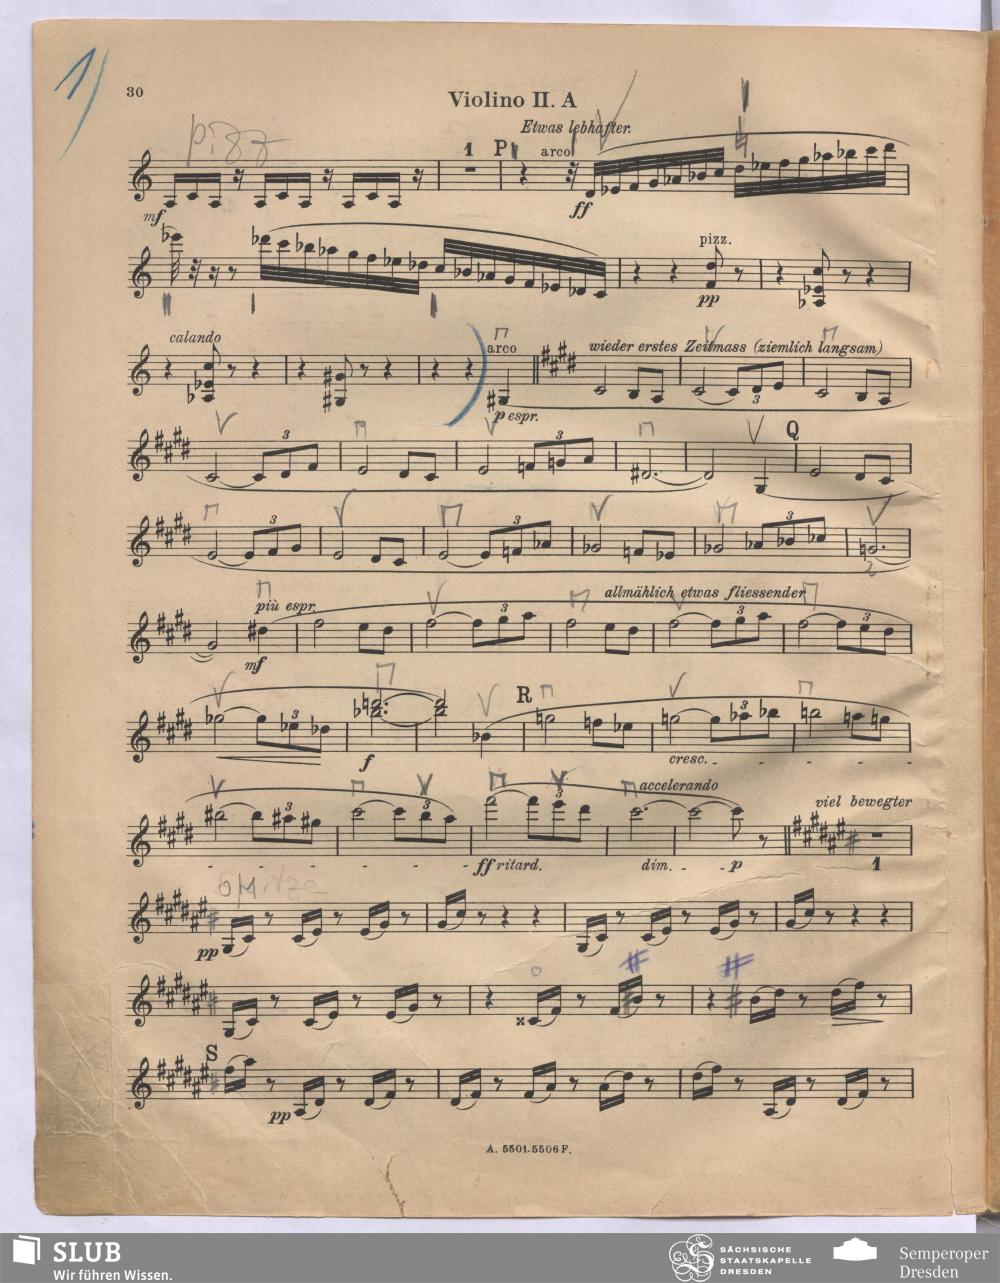 1)
30
Violino II. A
Etwas lebhafter.
pizz
1 P arco
mf
ff
pizz.
pp
calando
arco wieder erstes Zeitmass (ziemlich langsam)
p espr.
3
3 3
Q
3 3 3
3 3
più espr. allmählich etwas fliessender
3 3 3
mf
R
3 3
f cresc.
accelerando
viel bewegter
3 3 3
ff ritard. dim. p 1
Spitze
pp
S
pp
A. 5501.5506 F.
SLUB
Wir führen Wissen.
SÄCHSISCHE
STAATSKAPELLE
DRESDEN
Semperoper
Dresden